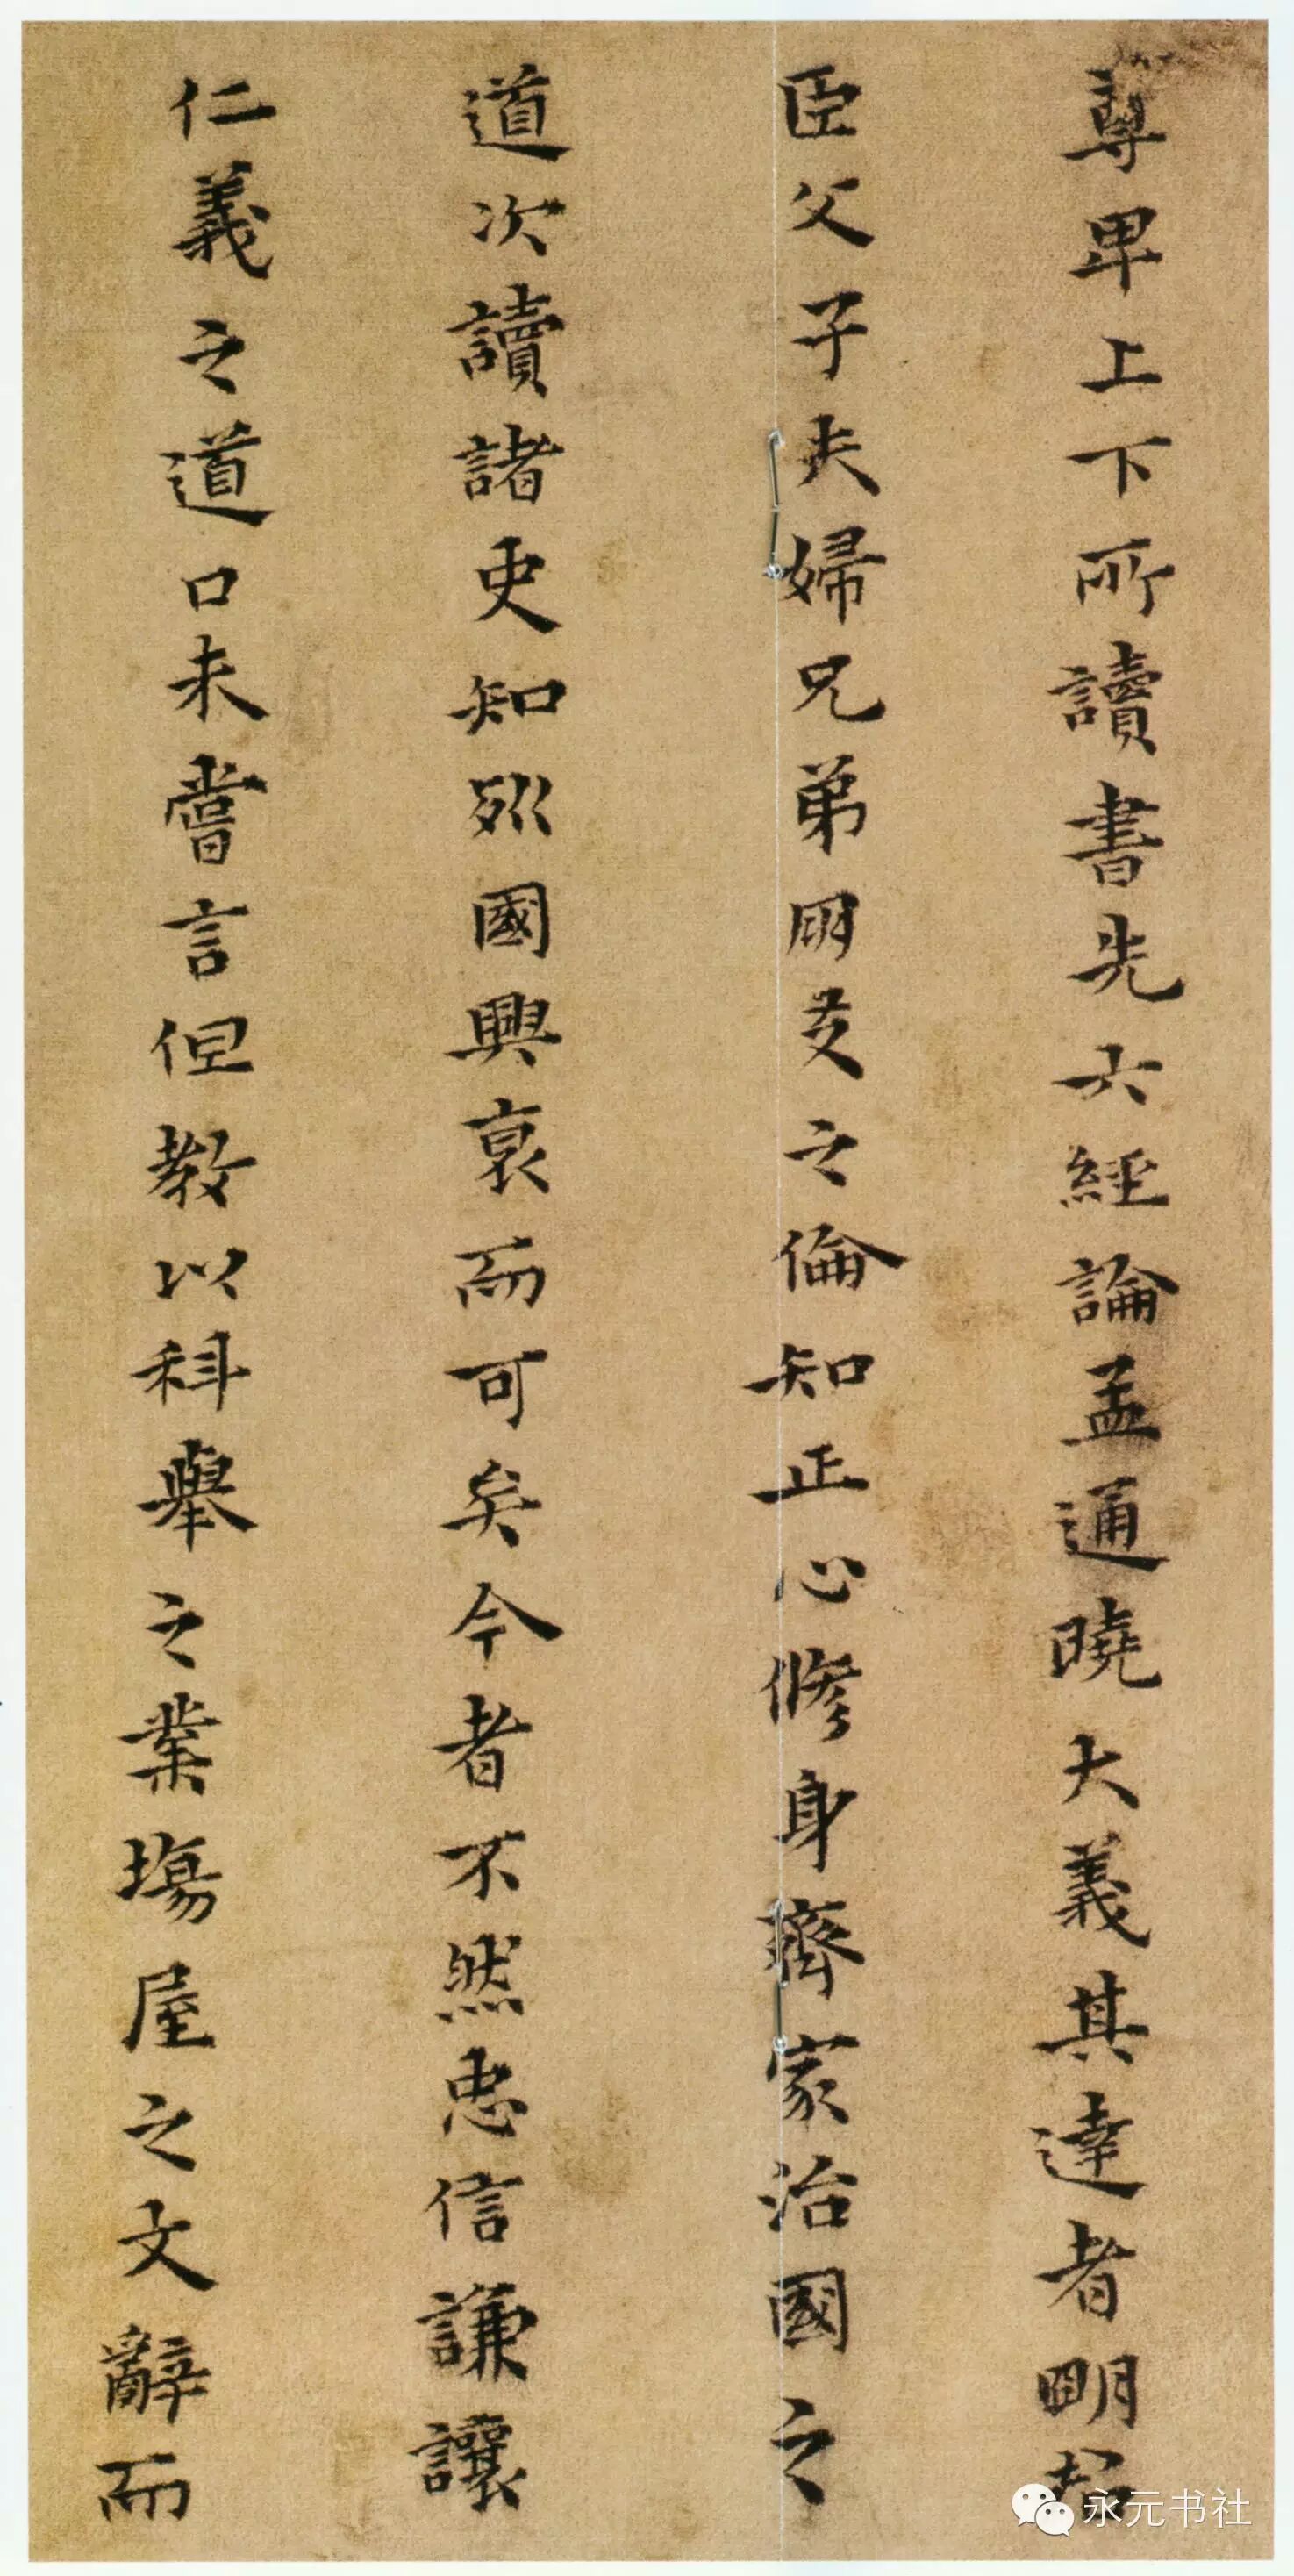 尊卑上下所讀書先六經論孟通曉大義其達者明君
臣父子夫婦兄弟朋友之倫知正心脩身齊家治國之
道次讀諸史知歷國興衰而可矣今者不然忠信謙讓
仁義之道口未嘗言但教以科舉之業場屋之文辭而
永元书社